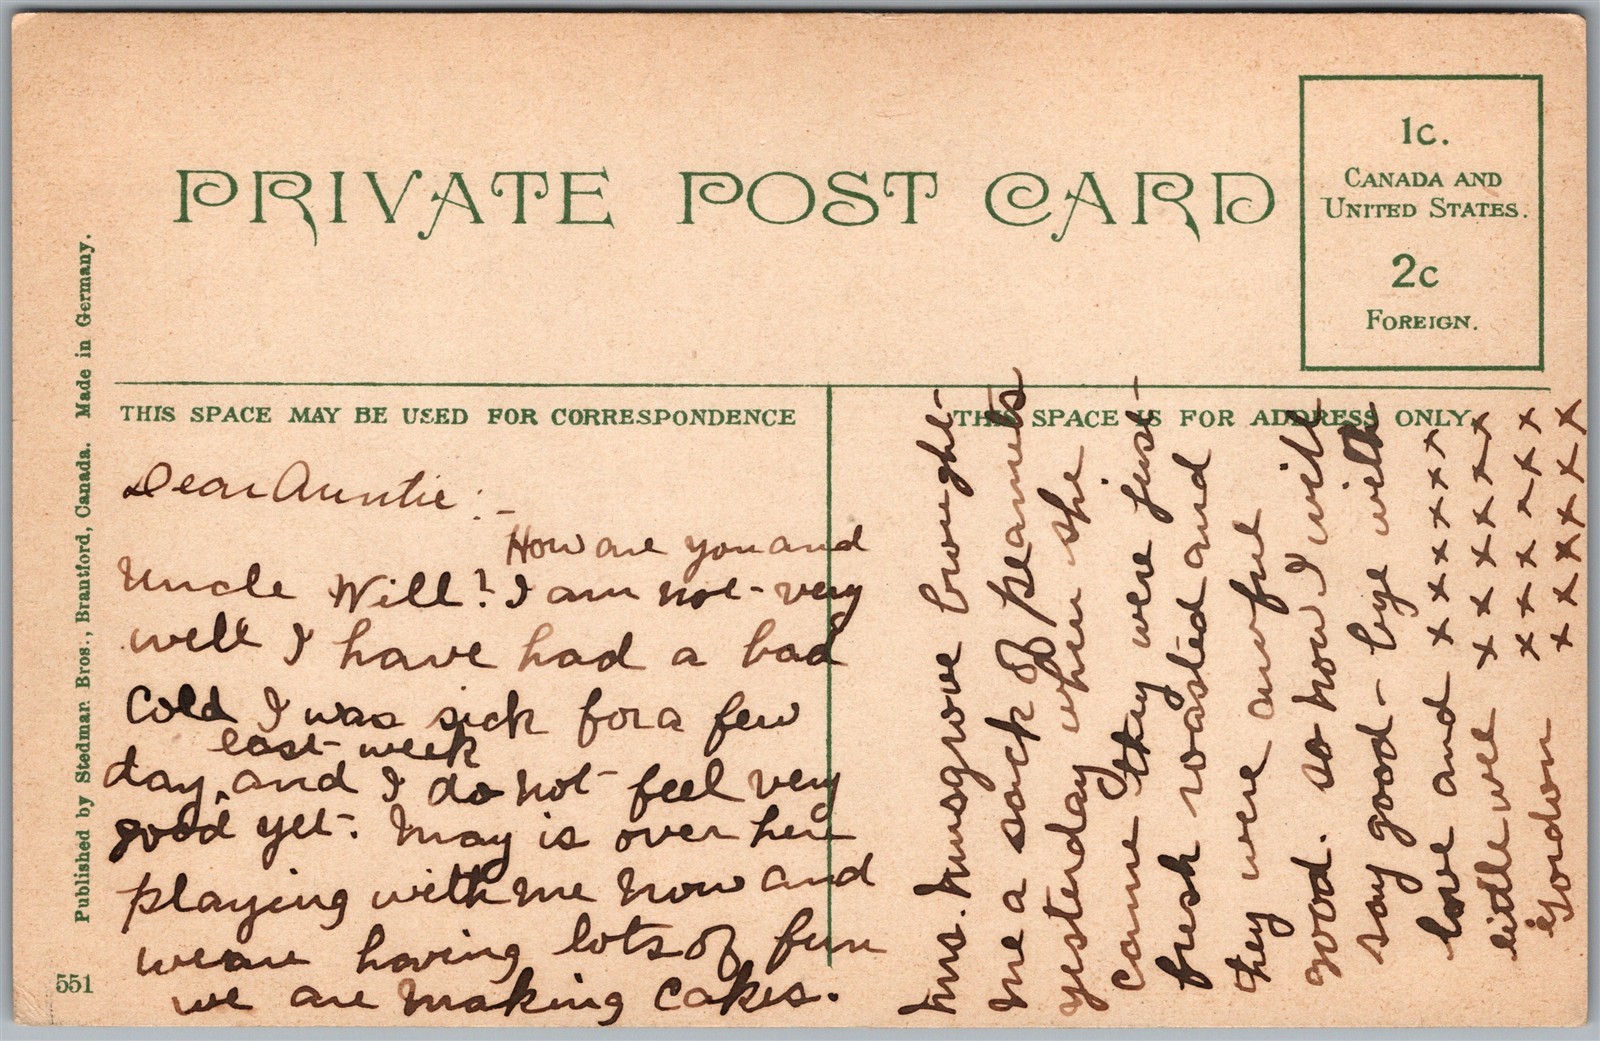 PRIVATE POST CARD
1c.
CANADA AND
UNITED STATES.
2c
FOREIGN.
Published by Stedman Bros., Brantford, Canada. Made in Germany.
551
THIS SPACE MAY BE USED FOR CORRESPONDENCE
THIS SPACE IS FOR ADDRESS ONLY.
Dear Auntie:-
How are you and
Uncle Will? I am not very
well I have had a bad
cold I was sick for a few
last week
day, and I do not feel very
good yet. May is over here
playing with me now and
we are having lots of fun
we are making cakes.
Mrs. Musgrove brought
me a sack of peanuts
yesterday when she
came they were just
fresh roasted and
they were awful
good. so now I will
say good-bye with
love and x x x x x
little wee x x x x x
Gordon x x x x x
x x x x x